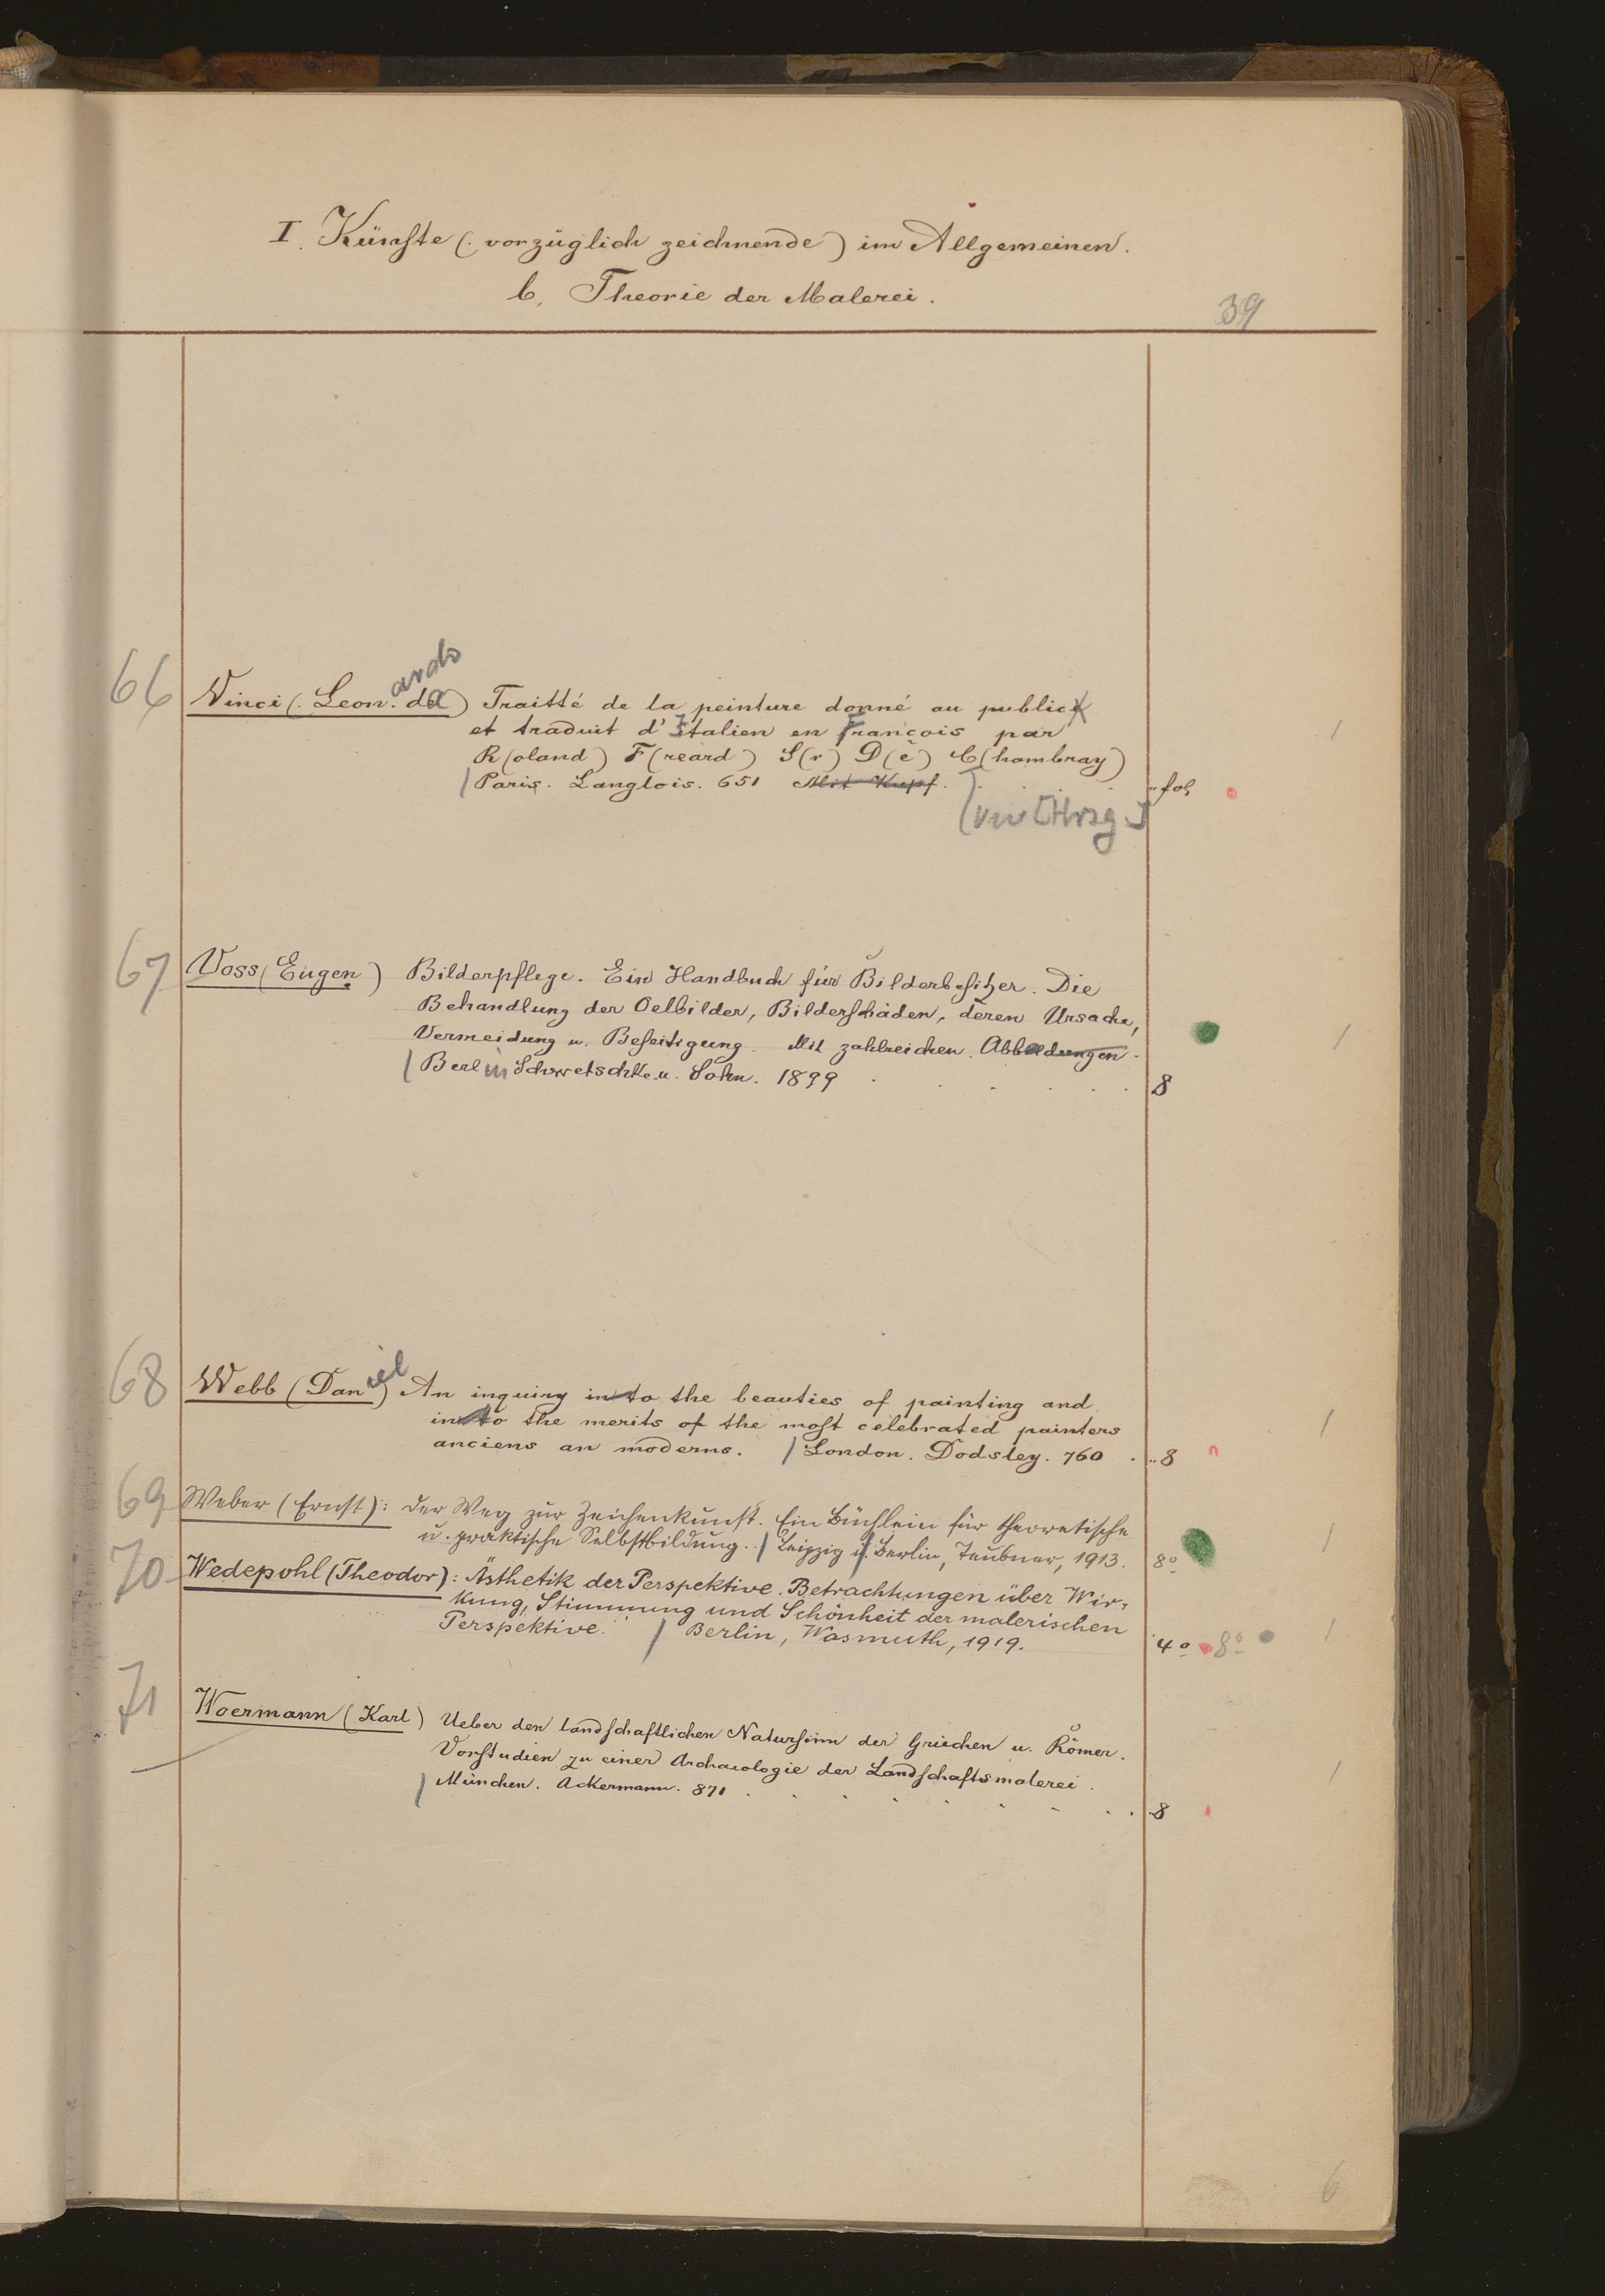 I. Künste (vorzüglich zeichnende) im Allgemeinen.
b. Theorie der Malerei.
39
66 Vinci (Leonardo da) Traitté de la peinture donné au public
et traduit d'Italien en françois par
R(oland) F(reard) S(r) D(e) C(hambray)
Paris. Langlois. 651 Mit Kupf. fol.
[Hrsg.]
67 Voss (Eugen) Bilderpflege. Ein Handbuch für Bilderbesitzer. Die
Behandlung der Oelbilder, Bilderschäden, deren Ursache,
Vermeidung u. Beseitigung. Mit zahlreichen Abbildungen.
Berlin Schwetschke u. Sohn. 1899 8
68 Webb (Daniel) An inquiry into the beauties of painting and
into the merits of the most celebrated painters
anciens an moderns. London. Dodsley. 760 8
69 Weber (Ernst): Der Weg zur Zeichenkunst. Ein Büchlein für theoretische
u. praktische Selbstbildung. Leipzig u. Berlin, Teubner, 1913. 8º
70 Wedepohl (Theodor): Ästhetik der Perspektive. Betrachtungen über Wir-
kung, Stimmung und Schönheit der malerischen
Perspektive. Berlin, Wasmuth, 1919. 4º 8º
71 Woermann (Karl) Ueber den landschaftlichen Natursinn der Griechen u. Römer.
Vorstudien zu einer Archaeologie der Landschaftsmalerei.
München. Ackermann. 871 8
6